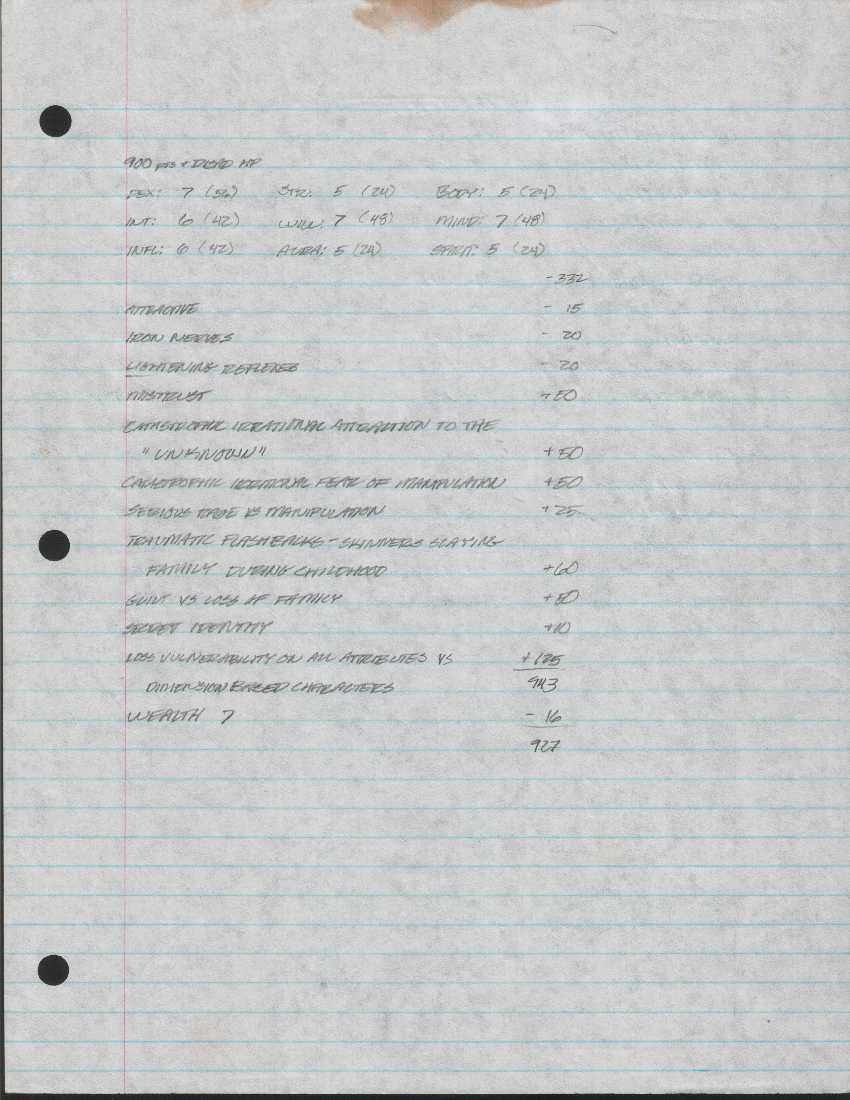 900 pts + HP
DEX: 7 (56) STR: 5 (24) BODY: 5 (24)
INT: 6 (42) WILL: 7 (48) MIND: 7 (48)
INFL: 6 (42) AURA: 5 (24) SPIRIT: 5 (24)
- 332
ATTRACTIVE - 15
IRON NERVES - 20
LIGHTENING REFLEXES - 20
MISTRUST +50
CATASTROPHIC IRRATIONAL ATTRACTION TO THE
"UNKNOWN" +50
CATASTROPHIC IRRATIONAL FEAR OF MANIPULATION +50
SERIOUS RAGE VS MANIPULATION +25
TRAUMATIC FLASHBACKS - SKINNERS SLAYING
FAMILY DURING CHILDHOOD +60
GUILT VS LOSS OF FAMILY +50
SECRET IDENTITY +10
LOSS VULNERABILITY ON ALL ATTRIBUTES VS +135
DIMENSION BASED CHARACTERS 943
WEALTH 7 - 16
927